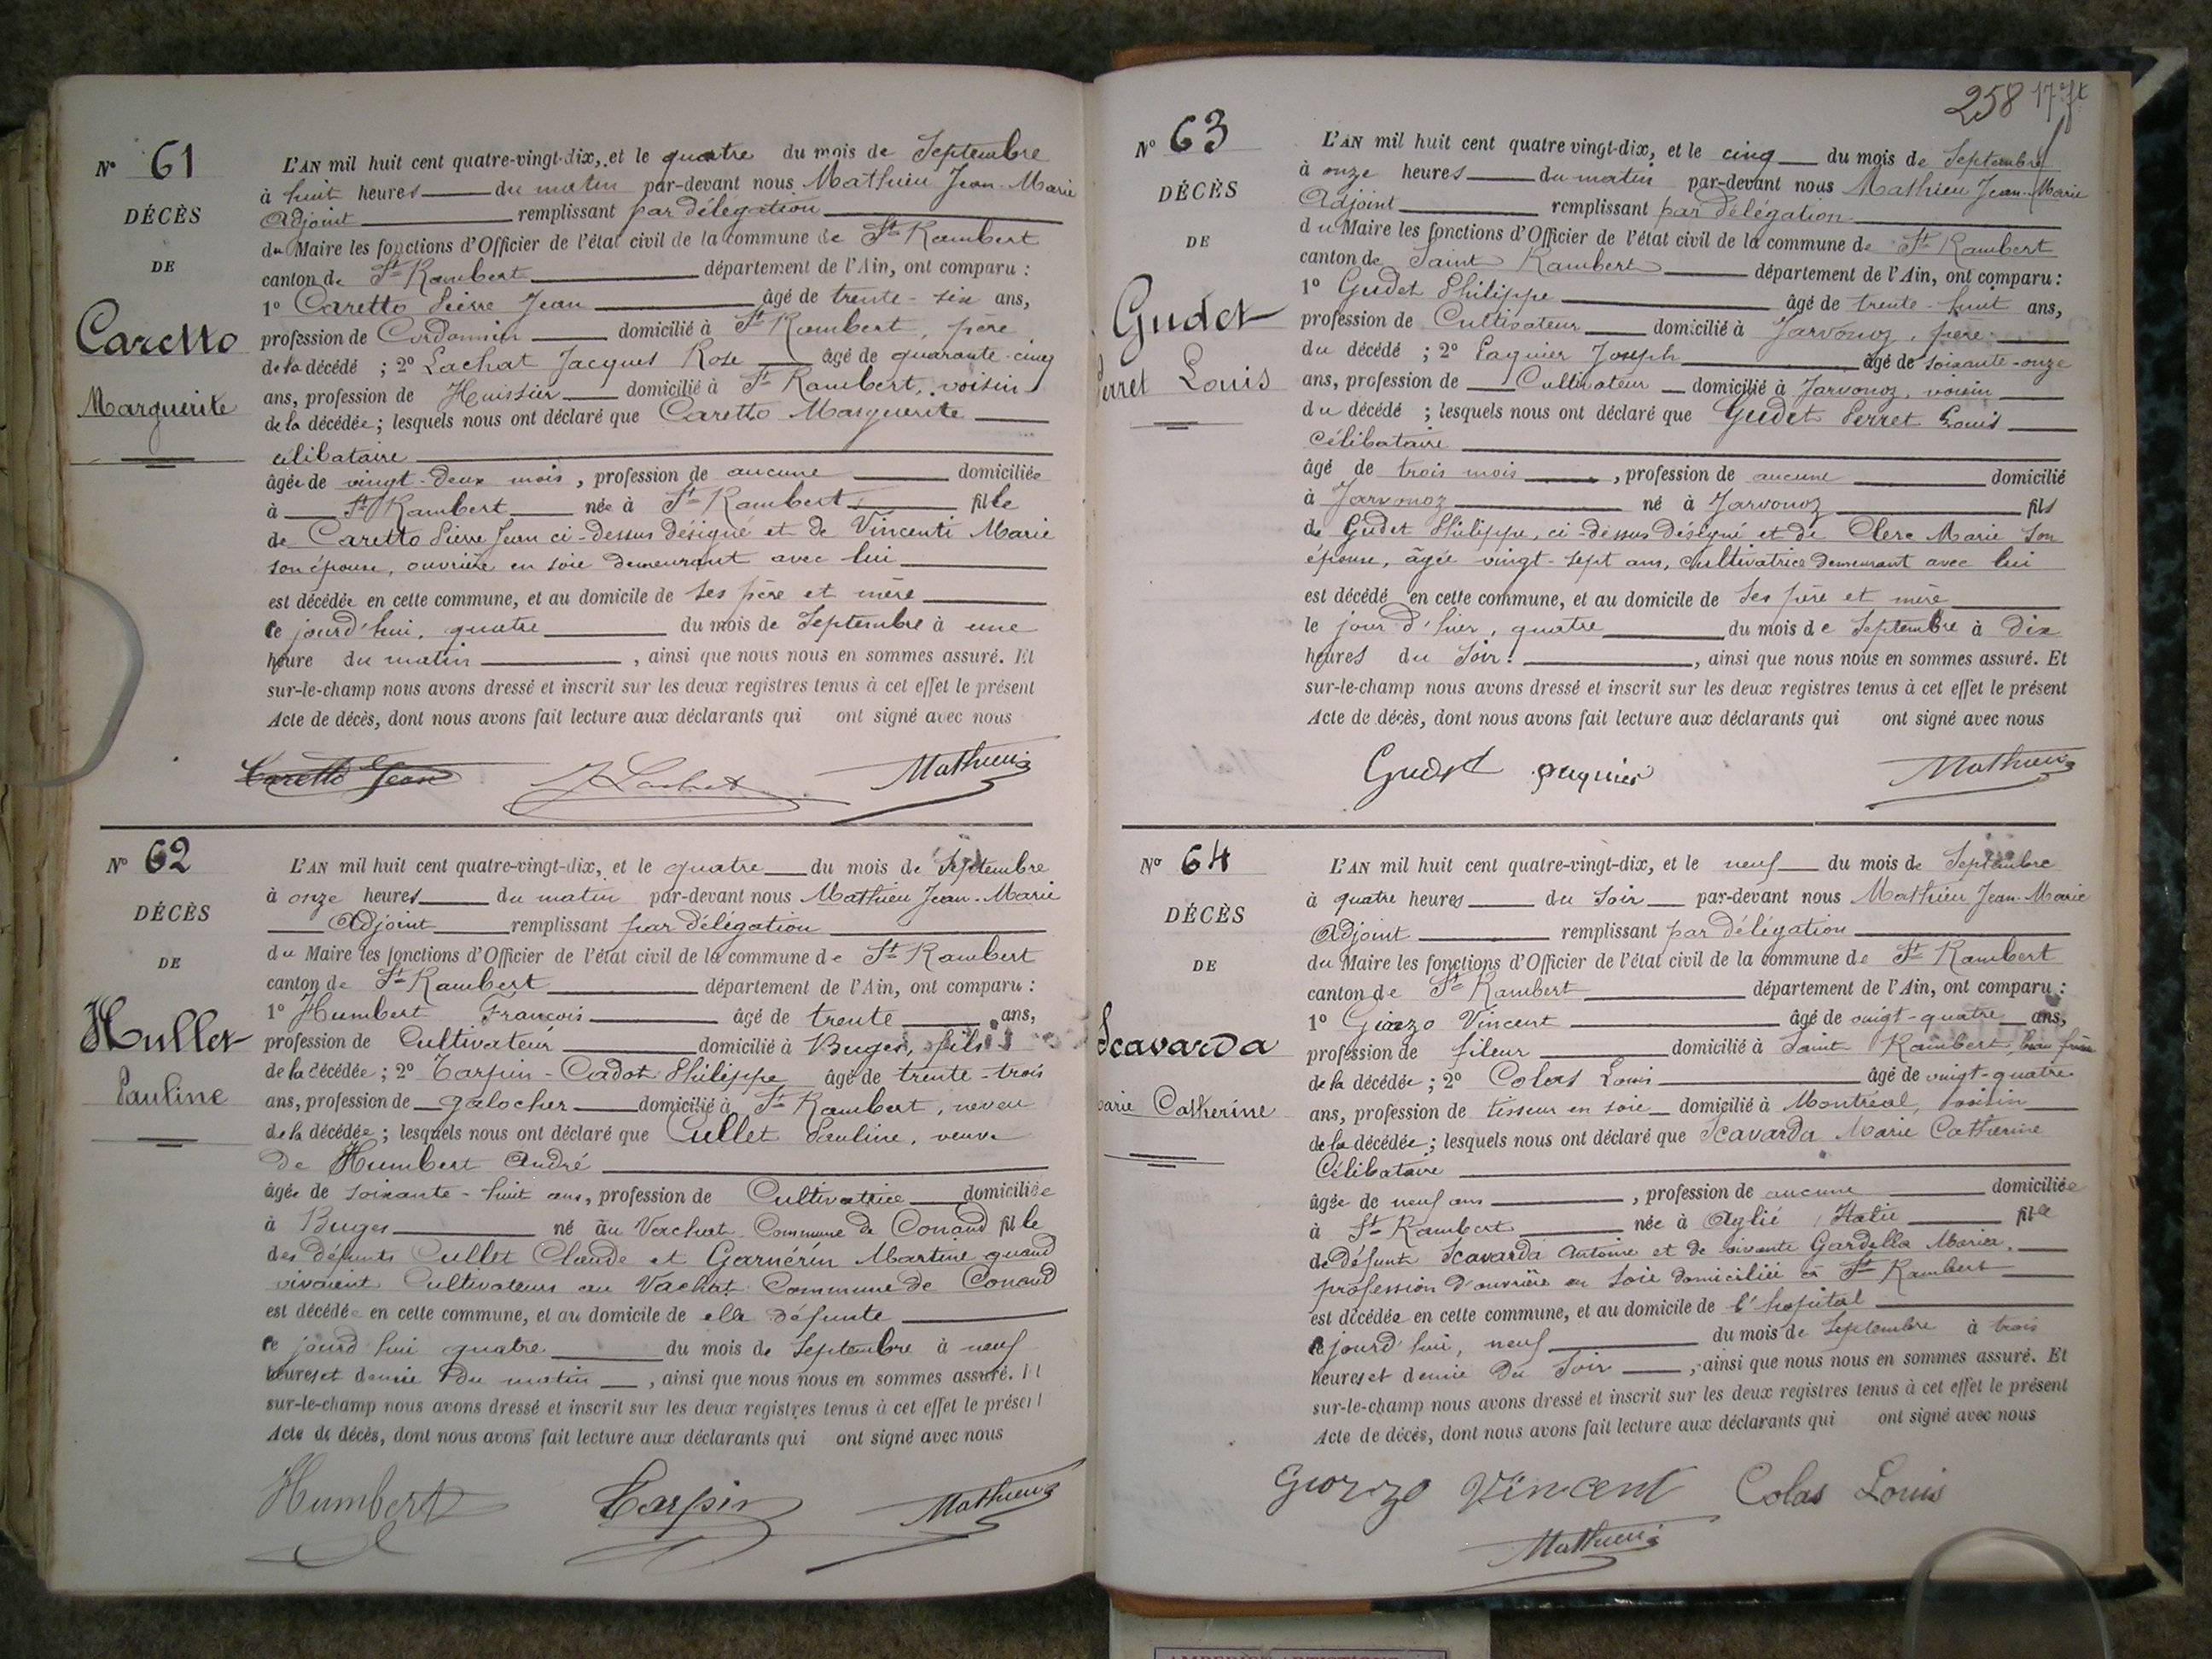 N° 61
DÉCÈS
DE
Caretto
Marguerite
L'AN mil huit cent quatre-vingt-dix, et le quatre du mois de Septembre
à huit heures du matin par-devant nous Mathieu Jean-Marie
Adjoint remplissant par délégation
du Maire les fonctions d'Officier de l'état civil de la commune de St Rambert
canton de St Rambert département de l'Ain, ont comparu :
1° Caretto Pierre Jean âgé de trente-six ans,
profession de Cordonnier domicilié à St Rambert, père
de la décédé ; 2° Lachat Jacques Rose âgé de quarante-cinq
ans, profession de Huissier domicilié à St Rambert, voisin
de la décédée ; lesquels nous ont déclaré que Caretto Marguerite
célibataire
âgée de vingt-deux mois, profession de aucune domiciliée
à St Rambert née à St Rambert fille
de Caretto Pierre Jean ci-dessus désigné et de Vincenti Marie
son épouse, ouvrière en soie demeurant avec lui
est décédée en cette commune, et au domicile de ses père et mère
ce jourd'hui, quatre du mois de Septembre à une
heure du matin, ainsi que nous nous en sommes assuré. Et
sur-le-champ nous avons dressé et inscrit sur les deux registres tenus à cet effet le présent
Acte de décès, dont nous avons fait lecture aux déclarants qui ont signé avec nous
Caretto Jean J Lachat Mathieu
N° 62
DÉCÈS
DE
Hullet
Pauline
L'AN mil huit cent quatre-vingt-dix, et le quatre du mois de Septembre
à onze heures du matin par-devant nous Mathieu Jean-Marie
Adjoint remplissant par délégation
du Maire les fonctions d'Officier de l'état civil de la commune de St Rambert
canton de St Rambert département de l'Ain, ont comparu :
1° Humbert François âgé de trente ans,
profession de Cultivateur domicilié à Buges, fils
de la décédée ; 2° Tarpin-Cadot Philippe âgé de trente-trois
ans, profession de galocher domicilié à St Rambert, neveu
de la décédée ; lesquels nous ont déclaré que Cullet Pauline, veuve
de Humbert André
âgée de soixante-huit ans, profession de Cultivatrice domiciliée
à Buges né au Vachat Commune de Conand fille
des défunts Cullet Claude et Garnérin Martine quand
vivaient Cultivateurs au Vachat Commune de Conand
est décédée en cette commune, et au domicile de elle défunte
ce jourd'hui quatre du mois de Septembre à neuf
heures et demie du matin, ainsi que nous nous en sommes assuré. Et
sur-le-champ nous avons dressé et inscrit sur les deux registres tenus à cet effet le présent
Acte de décès, dont nous avons fait lecture aux déclarants qui ont signé avec nous
Humbert Tarpin Mathieu
258
N° 63
DÉCÈS
DE
Gudet
Perret Louis
L'AN mil huit cent quatre vingt-dix, et le cinq du mois de Septembre
à onze heures du matin par-devant nous Mathieu Jean-Marie
Adjoint remplissant par délégation
du Maire les fonctions d'Officier de l'état civil de la commune de St Rambert
canton de Saint Rambert département de l'Ain, ont comparu :
1° Gudet Philippe âgé de trente-huit ans,
profession de Cultivateur domicilié à Javornoz, père
du décédé ; 2° Paquier Joseph âgé de soixante-onze
ans, profession de Cultivateur domicilié à Javornoz, voisin
du décédé ; lesquels nous ont déclaré que Gudet Perret Louis
célibataire
âgé de trois mois, profession de aucune domicilié
à Javornoz né à Javornoz fils
de Gudet Philippe, ci-dessus désigné et de Clerc Marie son
épouse, âgée vingt-sept ans, Cultivatrice demeurant avec lui
est décédé en cette commune, et au domicile de ses père et mère
le jour d'hier, quatre du mois de Septembre à dix
heures du soir, ainsi que nous nous en sommes assuré. Et
sur-le-champ nous avons dressé et inscrit sur les deux registres tenus à cet effet le présent
Acte de décès, dont nous avons fait lecture aux déclarants qui ont signé avec nous
Gudet paquier Mathieu
N° 64
DÉCÈS
DE
Scavarda
Marie Catherine
L'AN mil huit cent quatre-vingt-dix, et le neuf du mois de Septembre
à quatre heures du soir par-devant nous Mathieu Jean-Marie
Adjoint remplissant par délégation
du Maire les fonctions d'Officier de l'état civil de la commune de St Rambert
canton de St Rambert département de l'Ain, ont comparu :
1° Giozzo Vincent âgé de vingt-quatre ans,
profession de fileur domicilié à Saint Rambert, beau frère
de la décédée ; 2° Colas Louis âgé de vingt-quatre
ans, profession de tisseur en soie domicilié à Montréal, voisin
de la décédée ; lesquels nous ont déclaré que Scavarda Marie Catherine
Célibataire
âgée de neuf ans, profession de aucune domiciliée
à St Rambert née à Aglié, Italie fille
de défunt Scavarda Antoine et de vivante Gardella Maria,
profession d'ouvrière en soie domiciliée à St Rambert
est décédée en cette commune, et au domicile de l'hopital
ce jourd'hui, neuf du mois de Septembre à trois
heures et demie du soir, ainsi que nous nous en sommes assuré. Et
sur-le-champ nous avons dressé et inscrit sur les deux registres tenus à cet effet le présent
Acte de décès, dont nous avons fait lecture aux déclarants qui ont signé avec nous
Giozzo Vincent Colas Louis
Mathieu